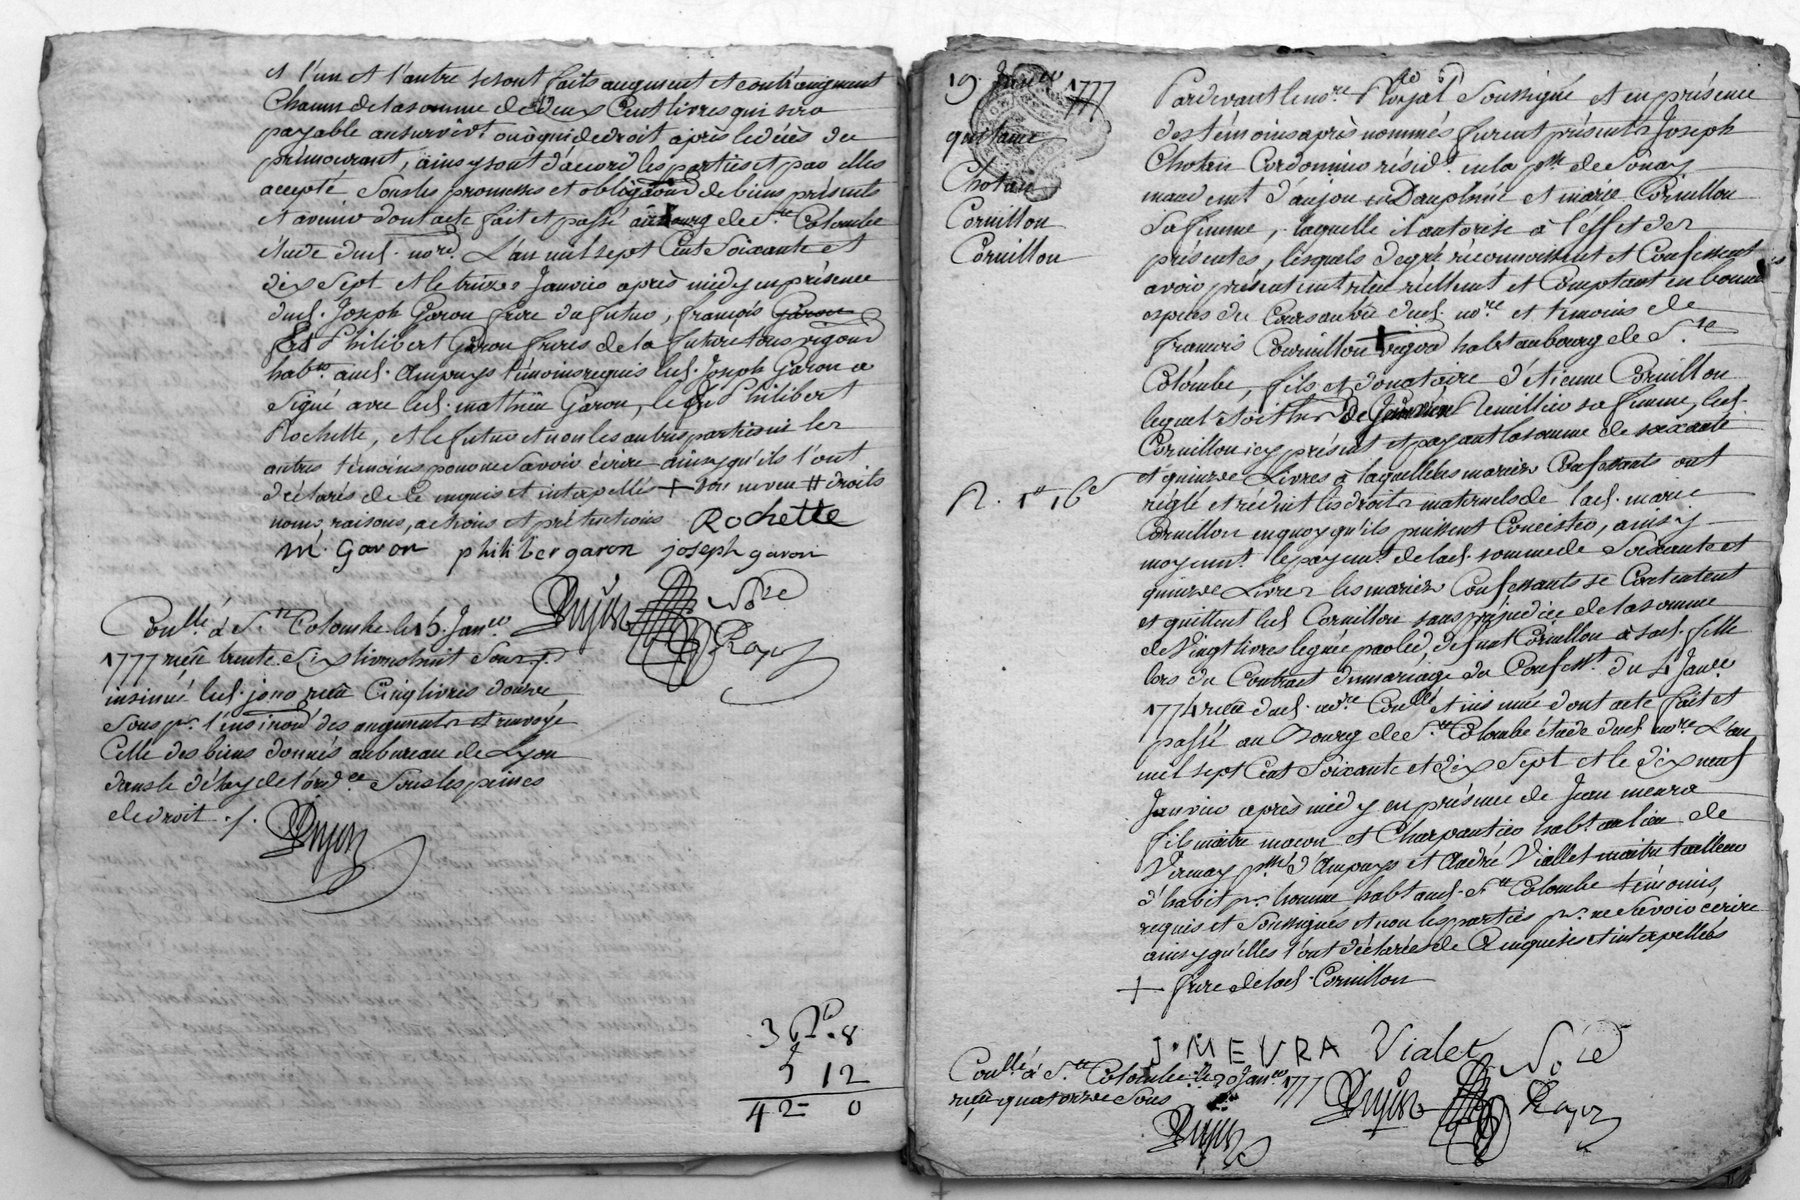 et l'un et l'autre se sont faits augment et contr'augment
chacun de la somme de deux Cent livres qui sera
payable au survivt. ou à qui de droit après le décès du
prémourant, ainsy sont d'accord les parties et par elles
accepté sous les promesses et obligaons de biens présents
et avenir dont acte fait et passé au bourg de Ste. Colombe
étude dud. nore. L'an mil sept Cent Soixante et
dix Sept et le treize Janvier après midy en présence
dud. Joseph Garon frère du futur, françois Garon
et Philibert Garon frères de la future tous vigons
habts. aud. Ampuys témoins requis led. Joseph Garon a
Signé avec led. mathieu Garon, led. Philibert
Rochette, et le futur et non les autres parties ni les
autres témoins pour ne savoir écrire ainsy qu'ils l'ont
déclarés de Ce enquis et interpellés + son neveu # droits
noms, raisons, actions et prétentions Rochette
m. Garon philiber garon joseph garon
Dujon Nore
Royal
Conllé à Ste Colombe le 15 Janer
1777 reçu trente Six livres huit Sous
insinué led. jour reçu Cinq livres douze
Sous pr. l'insinuon des augments et renvoyé
Celle des biens donnés au bureau de Lyon
dans le délay de l'ordce. Sous les peines
de droit ./.
Dujon
36 lt. 8
5 12
42 - 0
19 Janer 1777
quittance
Chotan
Cornillon
Cornillon
R. 1# 16s
Pardevant le nore. Royal Soussigné et en présence
des témoins après nommés furent présents Joseph
Chotan Cordonnier résidt. en la psse de Sonay
mandement d'anjou en Dauphiné et marie Cornillon
Sa femme, laquelle il autorise à l'effet des
présentes, lesquels de gré reconnoissent et Confessent
avoir présentement reçu réellemt et Comptant en bonnes
espèces du Cours au vû dud. nore et témoins de
francois Cournillon + vigon habt au bourg de Ste
Colombe, fils et donataire d'étienne Cornillon
lequel étoit her de Remillier sa femme, led.
Cornillon icy présent et payant la somme de soixante
et quinze Livres à laquelle les mariés Confessants ont
réglé et réduit les droits maternels de lad. marie
Cornillon en quoy qu'ils puissent Concister, ainsy
moyent. le payemt. de lad. somme de Soixante et
quinze Livres les mariés Confessants se Contentent
et quittent led Cornillon sans préjudice de la somme
de Vingt livres leguée par led. defunt Cornillon à sad. fille
lors du Contract de mariage du Confesst. du 4 Janer
1774 reçu dud. nore Conllé et insinué dont acte fait et
passé au Bourg de Ste. Colombe étude dud. nore L'an
mil sept Cent Soixante et dix Sept et le dix neuf
Janvier après midy en présence de Jean meura
fils maitre macon et Charpantier habt au lieu de
Vernay psse d'Ampuys et André Viallet maitre tailleur
d'habit pr. homme habt aud. Ste Colombe témoins
requis et Soussignés et non les parties pr. ne Savoir écrire
ainsy qu'elles l'ont déclarées de Ce enquises et interpellées
+ frère de lad. Cornillon
J. MEURA Vialet Nore
Dujon Royal
Conllé à Ste Colombe le 20 Janer 1777
reçu quatorze Sous
Dujon